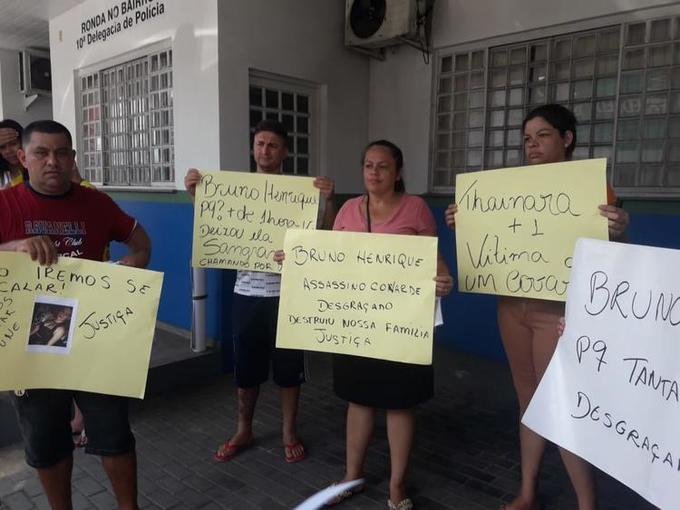 RONDA NO BAIRRO
10ª Delegacia de Polícia
RAVANELLI
Club
IREMOS SE
CALAR!
JUSTIÇA
Bruno Henrique
P9? + de 1 hora
Deixou ela
Sangra
CHAMANDO POR
BRUNO HENRIQUE
ASSASSINO COVARDE
DESGRAÇADO
DESTRUIU NOSSA FAMILIA
JUSTIÇA
Thainara
+ 1
Vitima
UM COVAR
BRUNO
P9 TANTA
DESGRAÇA